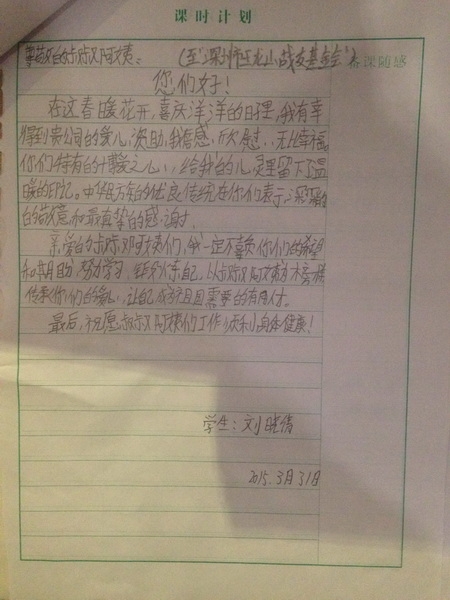 课时计划
尊敬的叔叔阿姨: (至深圳市正龙山战友基金会) 备课随感
您们好!
在这春暖花开,喜庆洋洋的日子里,我有幸
得到贵公司的爱心资助,我倍感欣慰,无比幸福。
你们特有的博爱之心,给我的心灵里留下了温
暖的印记。中华民族的优良传统在你们表示深深
的敬意和最真挚的感谢!
亲爱的叔叔阿姨们,我一定不辜负你们的希望
和期盼,努力学习,锻炼自己,以叔叔阿姨为榜样
传承你们的爱心,让自己成为祖国需要的有用人才。
最后,祝愿叔叔阿姨们工作顺利,身体健康!
学生:刘晓倩
2015.3月31日